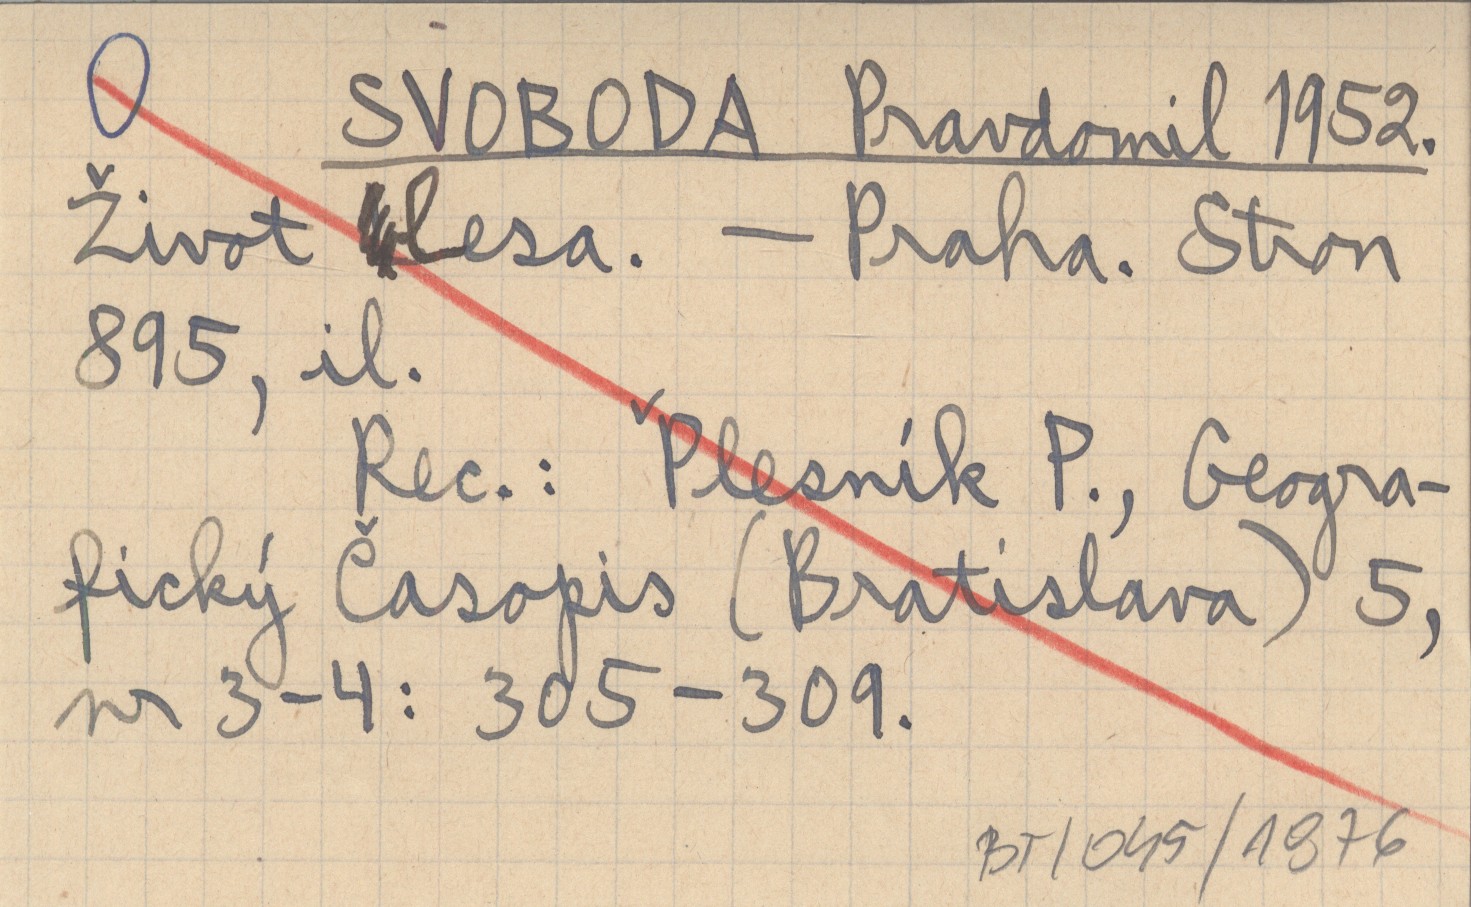 SVOBODA Pravdomil 1952.
Život lesa. — Praha. Stron
895, il.
Rec.: Plesník P., Geogra-
fický Časopis (Bratislava) 5,
nr 3-4: 305-309.
BT/045/1976